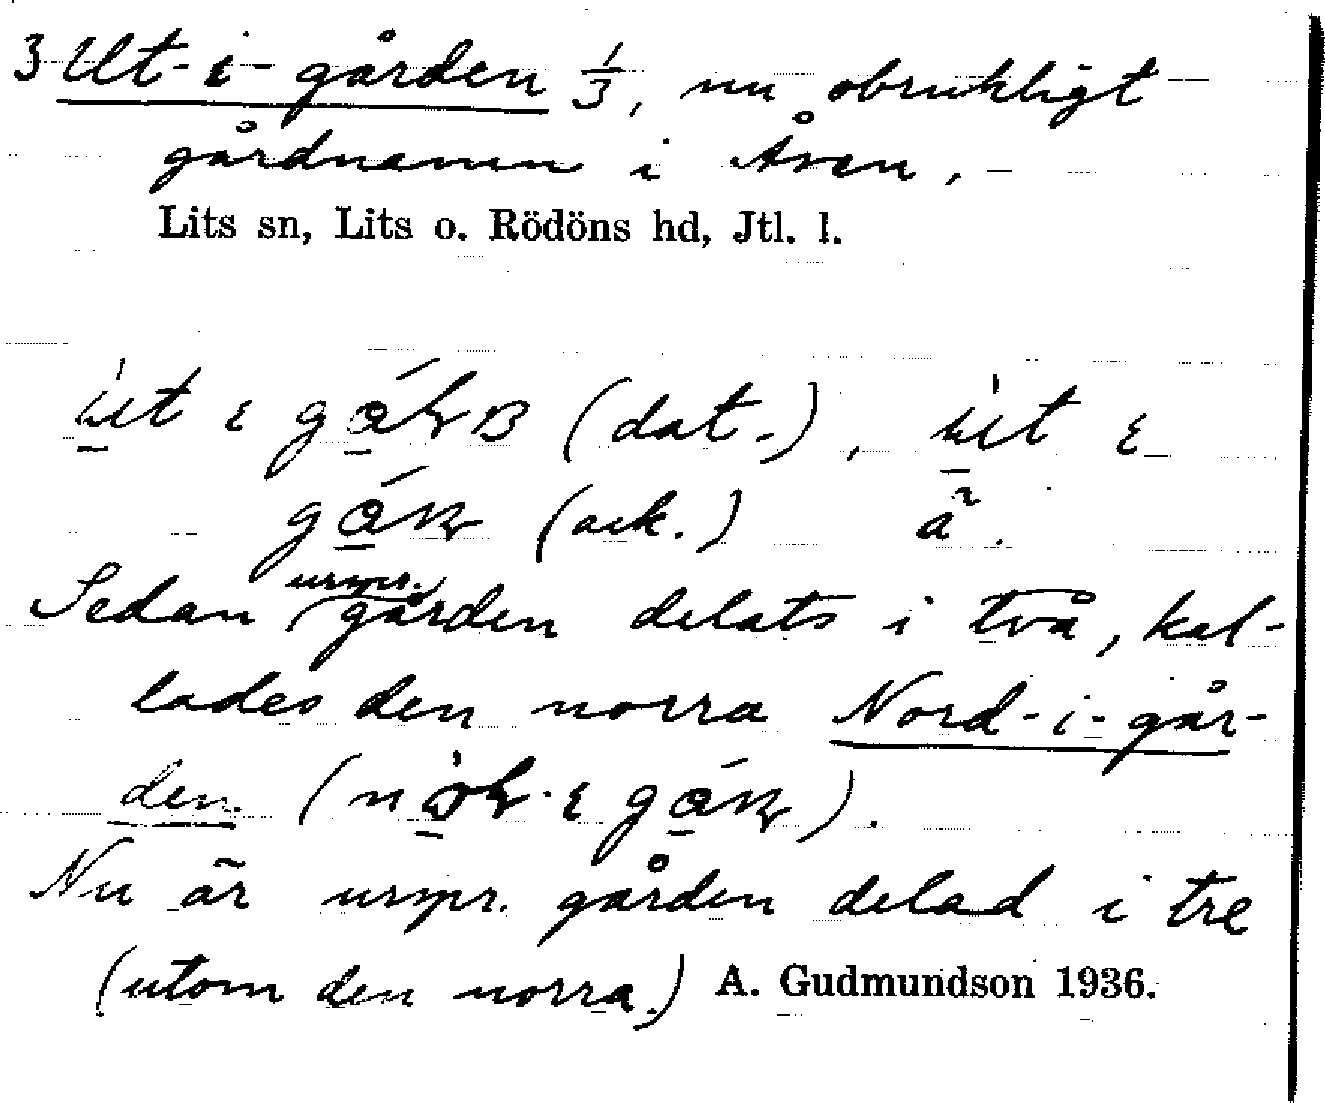 3 Ut-i-gården 1/3, nu obrukligt
gårdnamn i Åsen,
Lits sn, Lits o. Rödöns hd, Jtl. l.
(dat.),
(ack.)
urspr.
Sedan gården delats i två, kal-
lades den norra Nord-i-går-
den
Nu är urspr. gården delad i tre
(utom den norra) A. Gudmundson 1936.